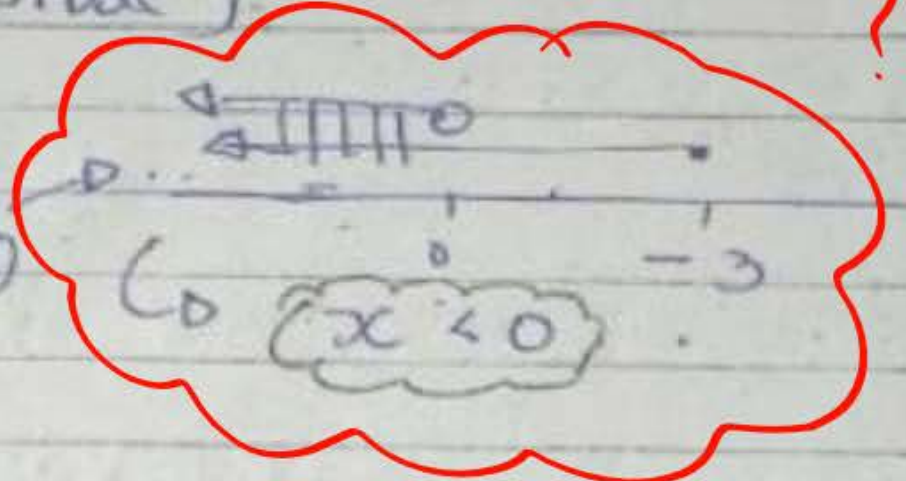 0 - 3
x < 0